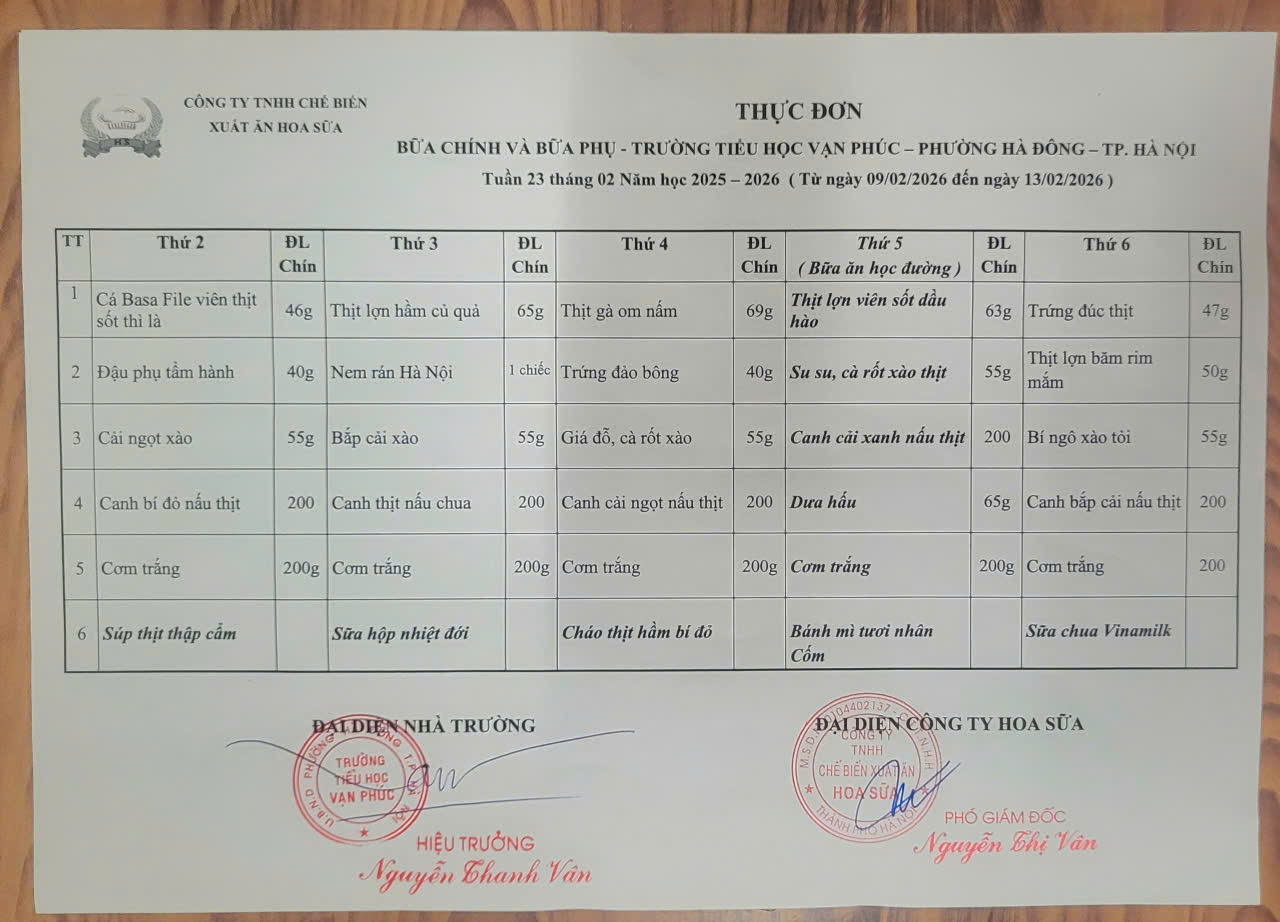 CÔNG TY TNHH CHẾ BIẾN
XUẤT ĂN HOA SỮA
H.S
THỰC ĐƠN
BỮA CHÍNH VÀ BỮA PHỤ - TRƯỜNG TIỂU HỌC VẠN PHÚC – PHƯỜNG HÀ ĐÔNG – TP. HÀ NỘI
Tuần 23 tháng 02 Năm học 2025 – 2026 ( Từ ngày 09/02/2026 đến ngày 13/02/2026 )
TT Thứ 2 ĐL Chín Thứ 3 ĐL Chín Thứ 4 ĐL Chín Thứ 5 ( Bữa ăn học đường ) ĐL Chín Thứ 6 ĐL Chín
1 Cá Basa File viên thịt sốt thì là 46g Thịt lợn hầm củ quả 65g Thịt gà om nấm 69g Thịt lợn viên sốt dầu hào 63g Trứng đúc thịt 47g
2 Đậu phụ tẩm hành 40g Nem rán Hà Nội 1 chiếc Trứng đảo bông 40g Su su, cà rốt xào thịt 55g Thịt lợn băm rim mắm 50g
3 Cải ngọt xào 55g Bắp cải xào 55g Giá đỗ, cà rốt xào 55g Canh cải xanh nấu thịt 200 Bí ngô xào tỏi 55g
4 Canh bí đỏ nấu thịt 200 Canh thịt nấu chua 200 Canh cải ngọt nấu thịt 200 Dưa hấu 65g Canh bắp cải nấu thịt 200
5 Cơm trắng 200g Cơm trắng 200g Cơm trắng 200g Cơm trắng 200g Cơm trắng 200
6 Súp thịt thập cẩm Sữa hộp nhiệt đới Cháo thịt hầm bí đỏ Bánh mì tươi nhân Cốm Sữa chua Vinamilk
ĐẠI DIỆN NHÀ TRƯỜNG
TRƯỜNG
TIỂU HỌC
VẠN PHÚC
HIỆU TRƯỞNG
Nguyễn Thanh Vân
ĐẠI DIỆN CÔNG TY HOA SỮA
CÔNG TY
TNHH
CHẾ BIẾN XUẤT ĂN
HOA SỮA
THÀNH PHỐ HÀ NỘI
PHÓ GIÁM ĐỐC
Nguyễn Thị Vân